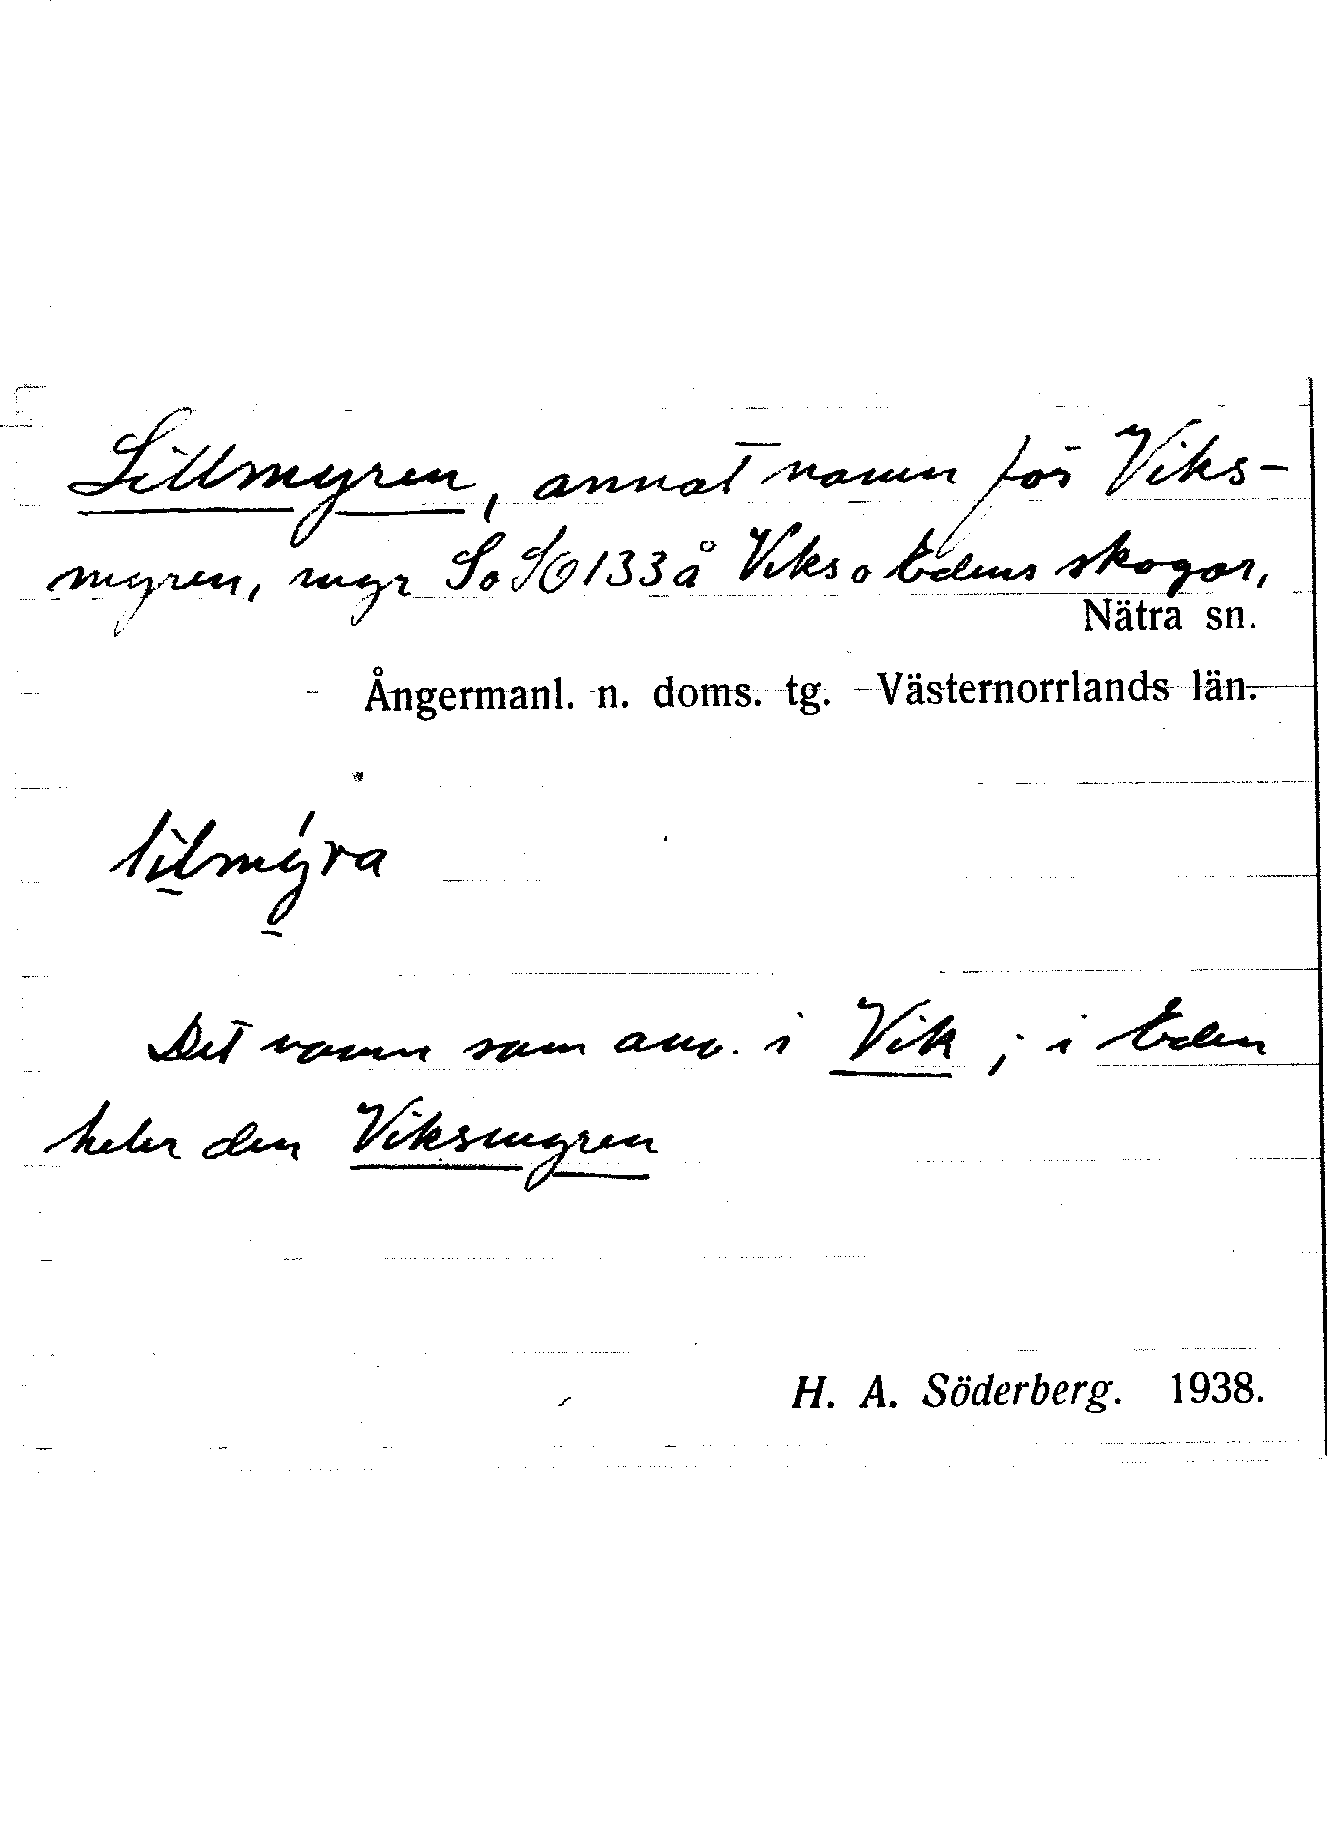 Lillmyren, annat namn för Viks-
myren, myr So SO 133 å Viks o Edens skogar,
Nätra sn.
Ångermanl. n. doms. tg. Västernorrlands län.
lìlmýra
Det namn som anv. i Vik ; i Eden
heter den Viksmyren
H. A. Söderberg. 1938.